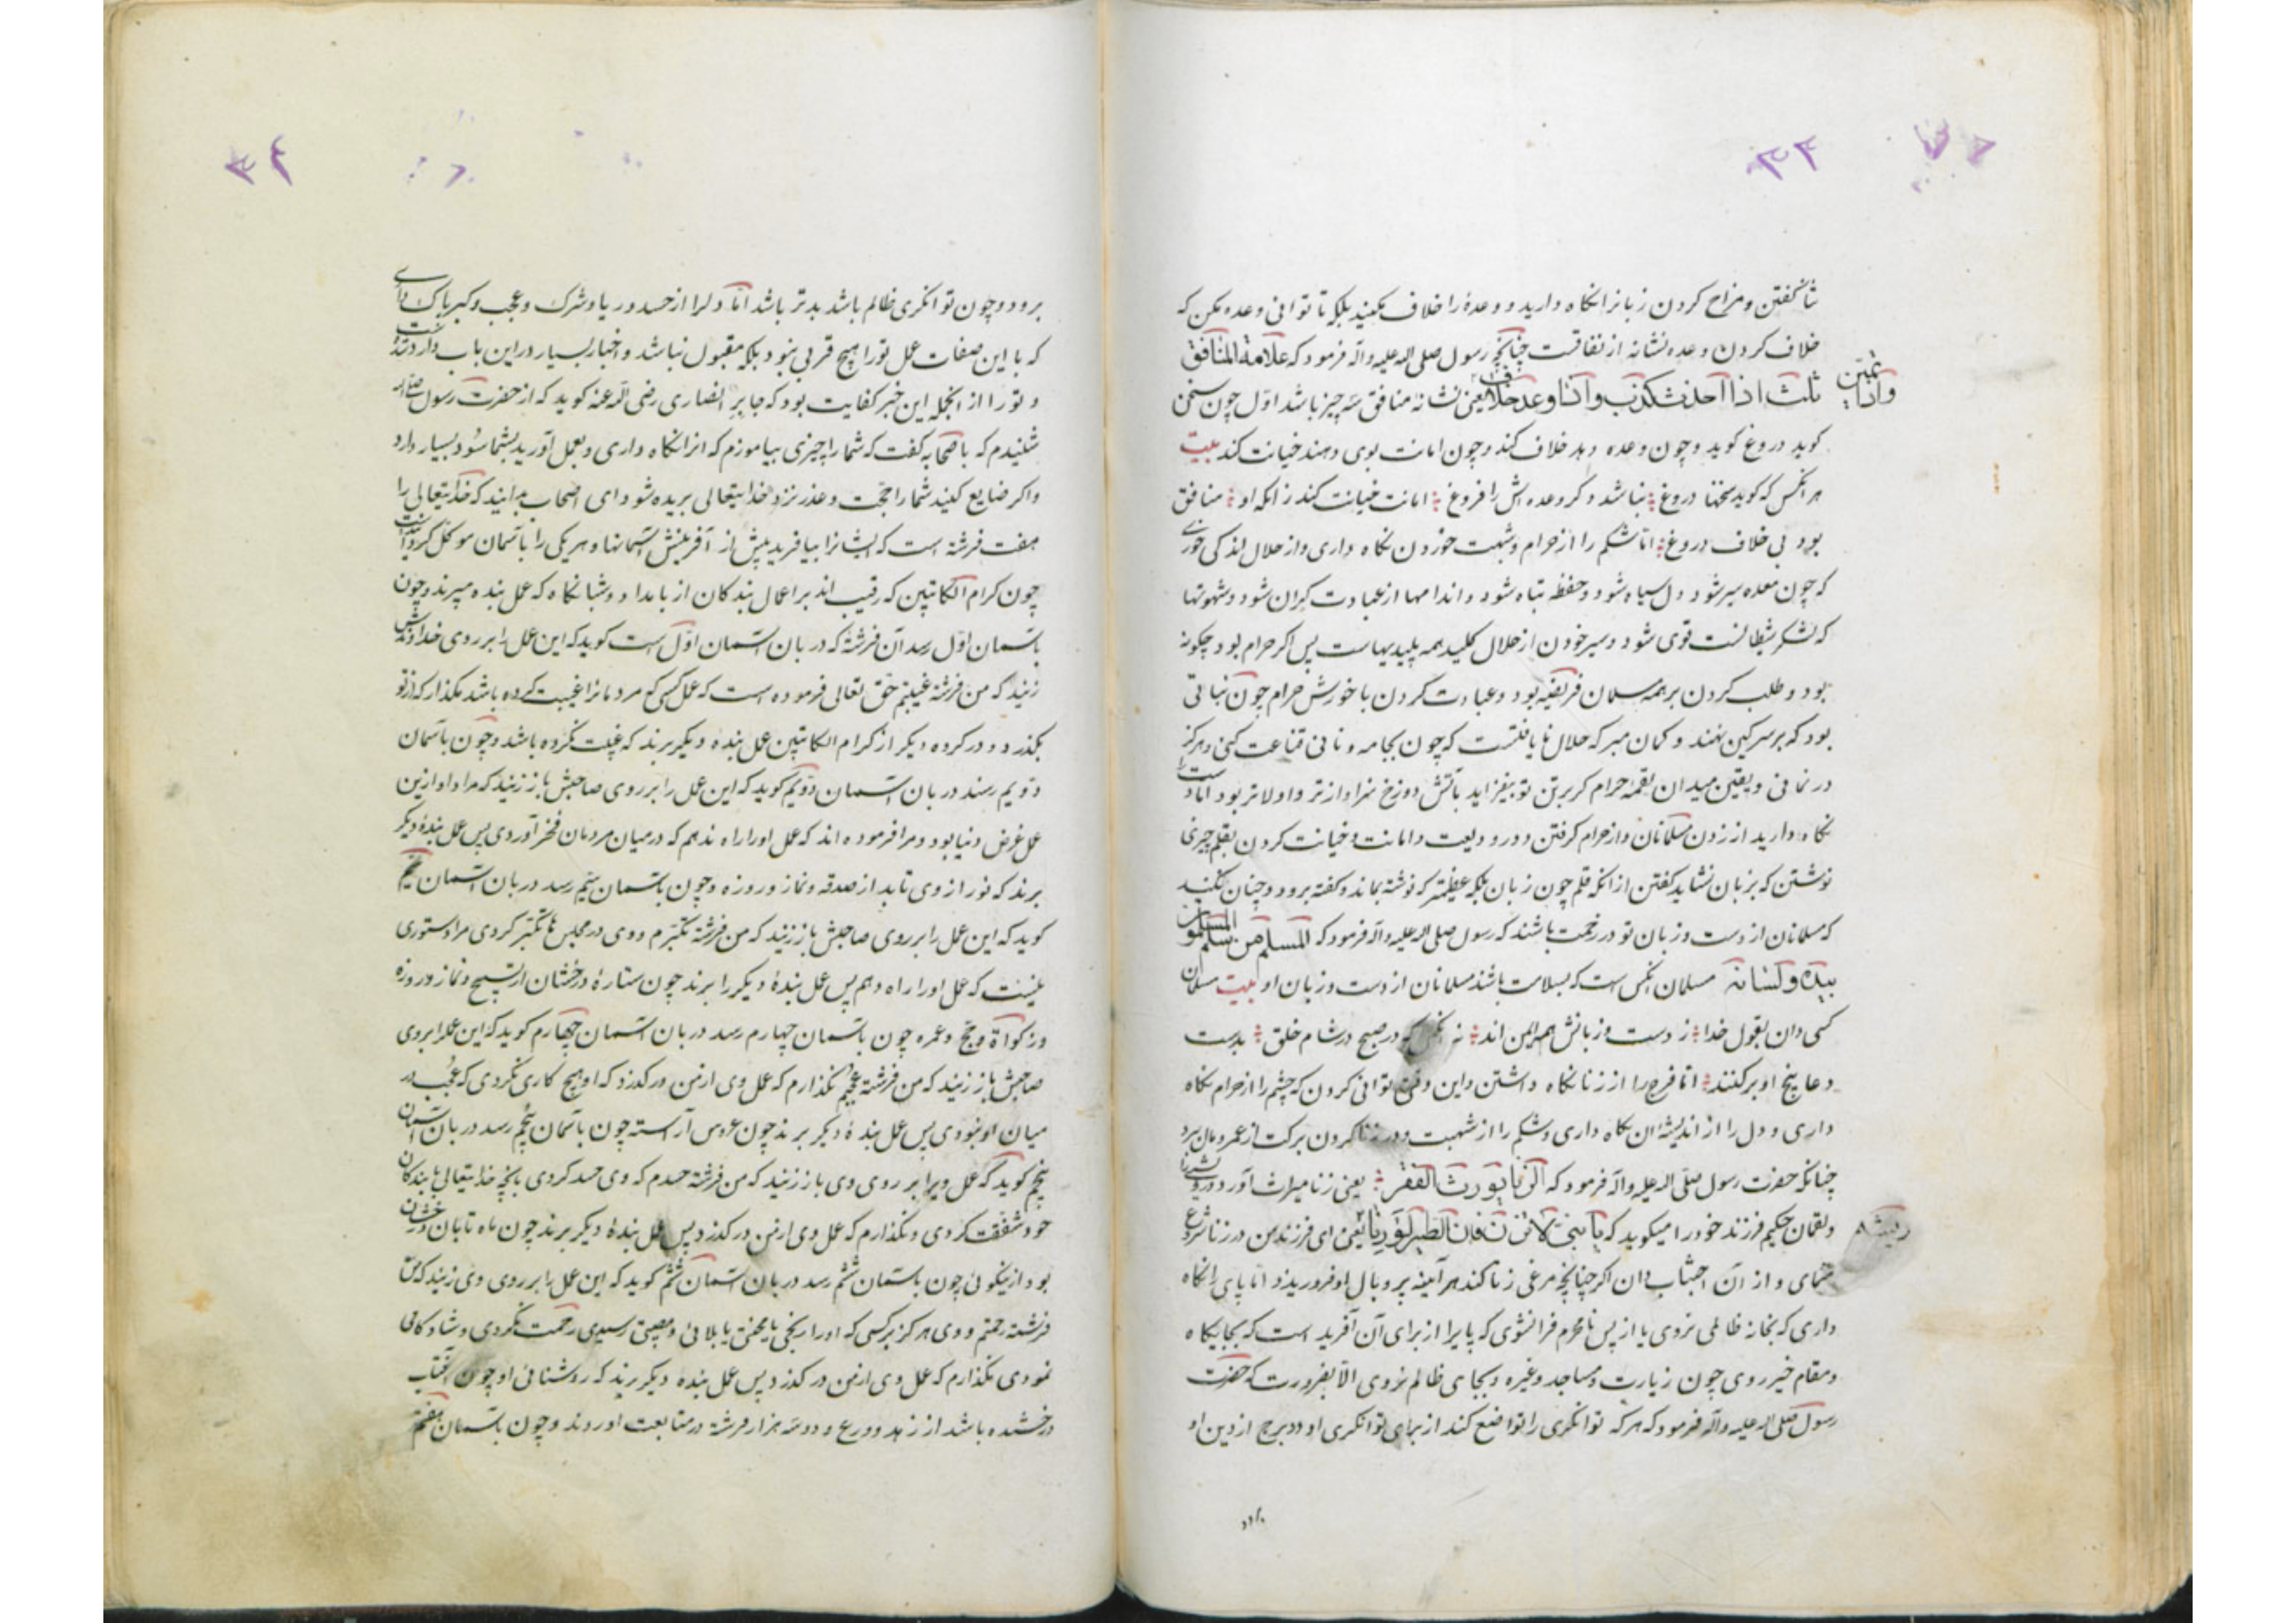 ۳۳
شا گفتن و مزاح کردن زبانرا نکاه دارید و وعدۀ را خلاف مکنید بلکه تا توانی وعده مکن که
خلاف کردن وعده نشانه از نفاقست چنانچه رسول صلی اله علیه واله فرمود که علامة المنافق
ثلث اذا احدث کذب واذا وعد خلاف یعنی نشانه منافق سه چیز باشد اوّل چون سخن
کوید دروغ کوید و چون وعده دهد خلاف کند و چون امانت بوی دهند خیانت کند بیت
هر انکس که کوید سخنها دروغ نباشد دکر وعده اش را فروغ امانت خیانت کند زانکه او منافق
بود بی خلاف دروغ امّا شکم را از حرام و شبهت خوردن نکاه داری و از حلال اندکی خوری
که چون معده سیر شود دل سیاه شود و حفظ تباه شود و اندامها از عبادت کران شود و شهوتها
که لشکر شیطانست قوی شود و سیر خودن از حلال کلید همه پلیدیهاست پس اکر حرام بود چکونه
بود و طلب کردن بر همه مسلمان فریضه بود و عبادت کردن با خورش حرام چون نباتی
بود که بر سرکین نهند و کمان مبر که حلال نایافتست که چون بجامه و نانی قناعت کنی هرکز
در نمانی و یقین میدان لقمۀ حرام کر بر تن تو بیفزاید باتش دوزخ سزاوارتر و اولاتر بود امّا دست را
نکاه دارید از زدن مسلمانان و از حرام کرفتن و در ودیعت و امانت و خیانت کردن بقلم چیزی
نوشتن که بزبان نشاید کفتن از انکه قلم چون زبان بلکه عظیمتر که نوشته بماند و کفته برود و چنان کنید
که مسلمانان از دست و زبان تو در رحمت باشند که رسول صلی اله علیه واله فرمود که المسلم من سلم المسلمون
بیده و لسانه مسلمان انکس است که بسلامت باشند مسلمانان از دست و زبان او بیت مسلمان
کسی دان بقول خدا ز دست و زبانش همه ایمن اند نه انکس که در صبح و در شام خلق بدست
دعا بیخ او بر کنند امّا فرج را از زنا نکاه داشتن و این وقتی توانی کردن که چشم را از حرام نکاه
داری و دل را از اندیشۀ ان نکاه داری و شکم را از شبهت و در زنا کردن برکت از عمر و مال برد
چنانکه حضرت رسول صلّی اله علیه واله فرمود که الزنا یورث الفقر یعنی زنا میراث آورد درویشی را
ولقمان حکیم فرزند خود را میکوید که یا بنی لا تزن فان الطیر لو زنا یعنی ای فرزند من در زنا شروع
منمای و از آن اجتناب دان اکر چنانچه مرغی زنا کند هر آینه پر و بال او فرو ریزد امّا پای را نکاه
داری که بخانه ظالمی نروی یا از پس نامحرم فرا نشوی که پا را از برای آن آفرید است که بجایکاه
و مقام خیر روی چون زیارت و مساجد و غیره و بجای ظالم نروی الّا بضرورت که حضرت
رسول صلی اله علیه واله فرمود که هر که توانکری را تواضع کند از برای توانکری او دو برخ از دین او
برود
۳۴
برود و چون توانکری ظالم باشد بدتر باشد امّا دلرا از حسد و ریا و شرک و عجب و کبر پاک داری
که با این صفات عمل تو را هیچ قربی نبود بلکه مقبول نباشد و اخبار بسیار در این باب وارد شده است
و تو را از انجمله این خبر کفایت بود که جابر انصاری رضی الله عنه کوید که از حضرت رسول صلی اله
شنیدم که با صحابه کفت که شما را چیزی بیاموزم که انرا نکاه داری و بعمل آورید بشما سود بسیار دارد
و اکر ضایع کنید شما را حجّت و عذر نزد خدایتعالی بریده شود ای اصحاب بدانید که خدایتعالی را
هفت فرشته است که ایشانرا بیافرید پیش از آفرینش آسمانها و هر یکی را باسمان موکل کردانیده است
چون کرام الکاتبین که رقیب اند بر اعمال بندکان از بامداد و شبانکاه که عمل بنده میبرند و چون
باسمان اوّل رسد آن فرشتۀ که دربان آسمان اوّل است کوید که این عمل را بر روی خداوندش
زنید که من فرشتۀ غیبتم حقّ تعالی فرموده است که عمل کسی که مردمانرا غیبت کرده باشد مکذار که از تو
بکذرد و در کرده دیکر از کرام الکاتبین عمل بنده دیکر برند که غیبت نکرده باشد و چون باسمان
دوّیم رسند دربان آسمان دوّیم کوید که این عمل را بر روی صاحبش باز زنید که مراد او ازین
عمل غرض دنیا بود و مرا فرموده اند که عمل او را راه ندهم که در میان مردمان فخر آوردی پس عمل بندۀ دیکر
برند که نور از وی تابد از صدقه و نماز و روزه و چون باسمان سیّم رسد دربان آسمان سیّم
کوید که این عمل را بر روی صاحبش باز زنید که من فرشتۀ تکبّرم و وی در مجلس ها تکبّر کردی مرا دستوری
نیست که عمل او را راه دهم پس عمل بندۀ دیکر را برند چون ستارۀ درخشان از تسبیح و نماز و روزه
و زکواة و حجّ و عمره چون باسمان چهارم رسد دربان آسمان چهارم کوید که این عمل را بر روی
صاحبش باز زنید که من فرشتۀ عجبم نکذارم که عمل وی از من در کذرد که او هیچ کاری نکردی که عُجب در
میان او نبودی پس عمل بندۀ دیکر برند چون عروس آراسته چون باسمان پنجم رسد دربان آسمان
پنجم کوید که عمل ویرا بر روی وی باز زنید که من فرشتۀ حسدم که وی حسد کردی بانچه خدایتعالی با بندکان
خود شفقت کردی و نکذارم که عمل وی از من در کذرد پس عمل بندۀ دیکر برند چون ماه تابان درخشان
بود از نیکوئی چون باسمان ششم رسد دربان آسمان ششم کوید که این عمل را بر روی وی زنید که من
فرشته رحمتم و وی هرکز بر کسی که او را رنجی یا محنتی یا بلائی و مصیبتی رسیدی رحمت نکردی و شادکامی
نمودی نکذارم که عمل وی از من در کذرد پس عمل بنده دیکر برند که روشنائی او چون آفتاب
درخشنده باشد از زهد و ورع و دو سه هزار فرشته در متابعت او روند و چون باسمان هفتم